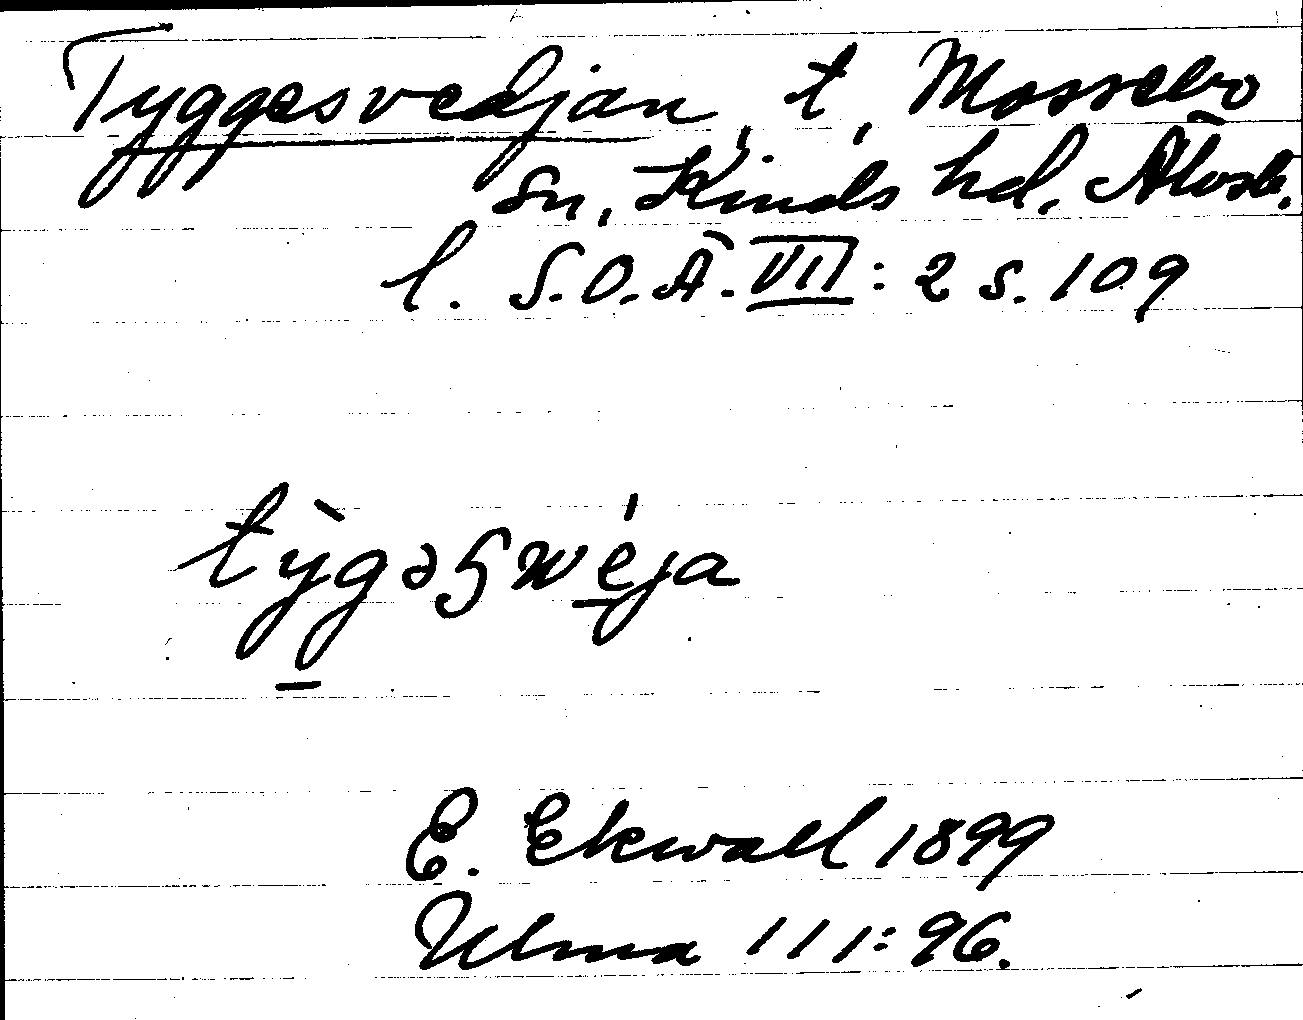 Tyggesvedjan, t, Mossebo
sn, Kinds hd. Älvsb.
l. S.O.Ä. VII: 2 s. 109
tỳgəſwéja
E. Ekwall 1899
Ulma 111:96.